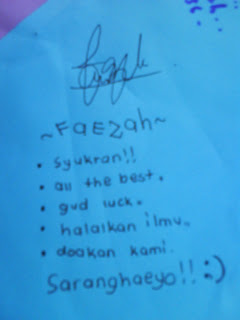 ~FaEzah~
• syukran!!
• all the best.
• gud luck.
• halalkan ilmu.
• doakan kami.
Saranghaeyo!! :)